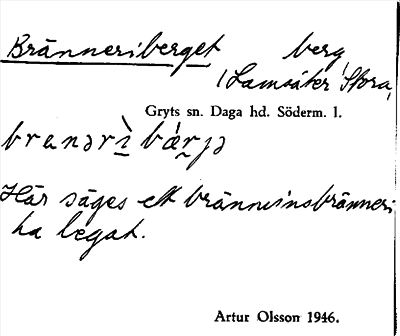 Bränneriberget berg
(Lamsäter, Stora,
Gryts sn. Daga hd. Söderm. l.
brenərì̠ bǽr̠jə
Här säges ett brännvinsbränneri
ha legat.
Artur Olsson 1946.